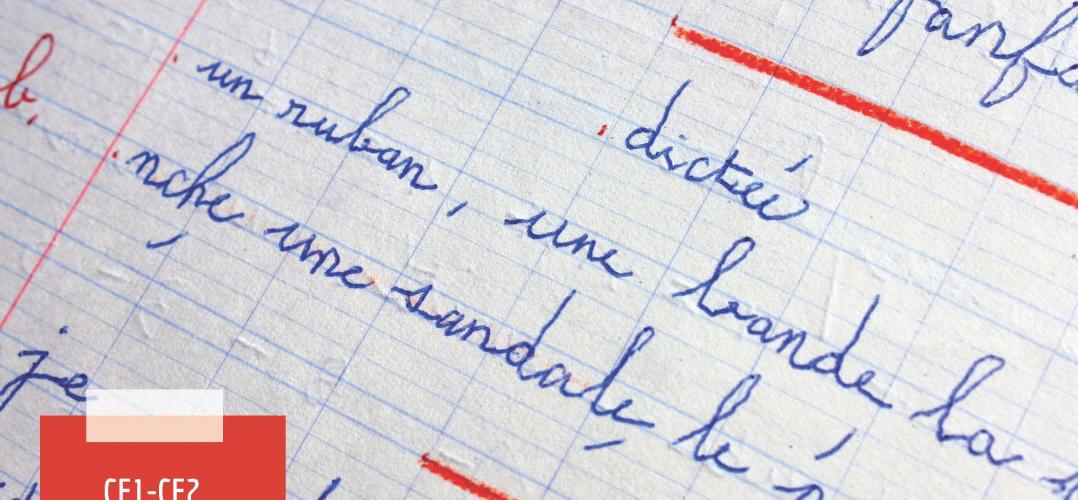 fanfa
dictée
b.
un ruban, une bande, la
nche, une sandale, le
je
CE1-CE2